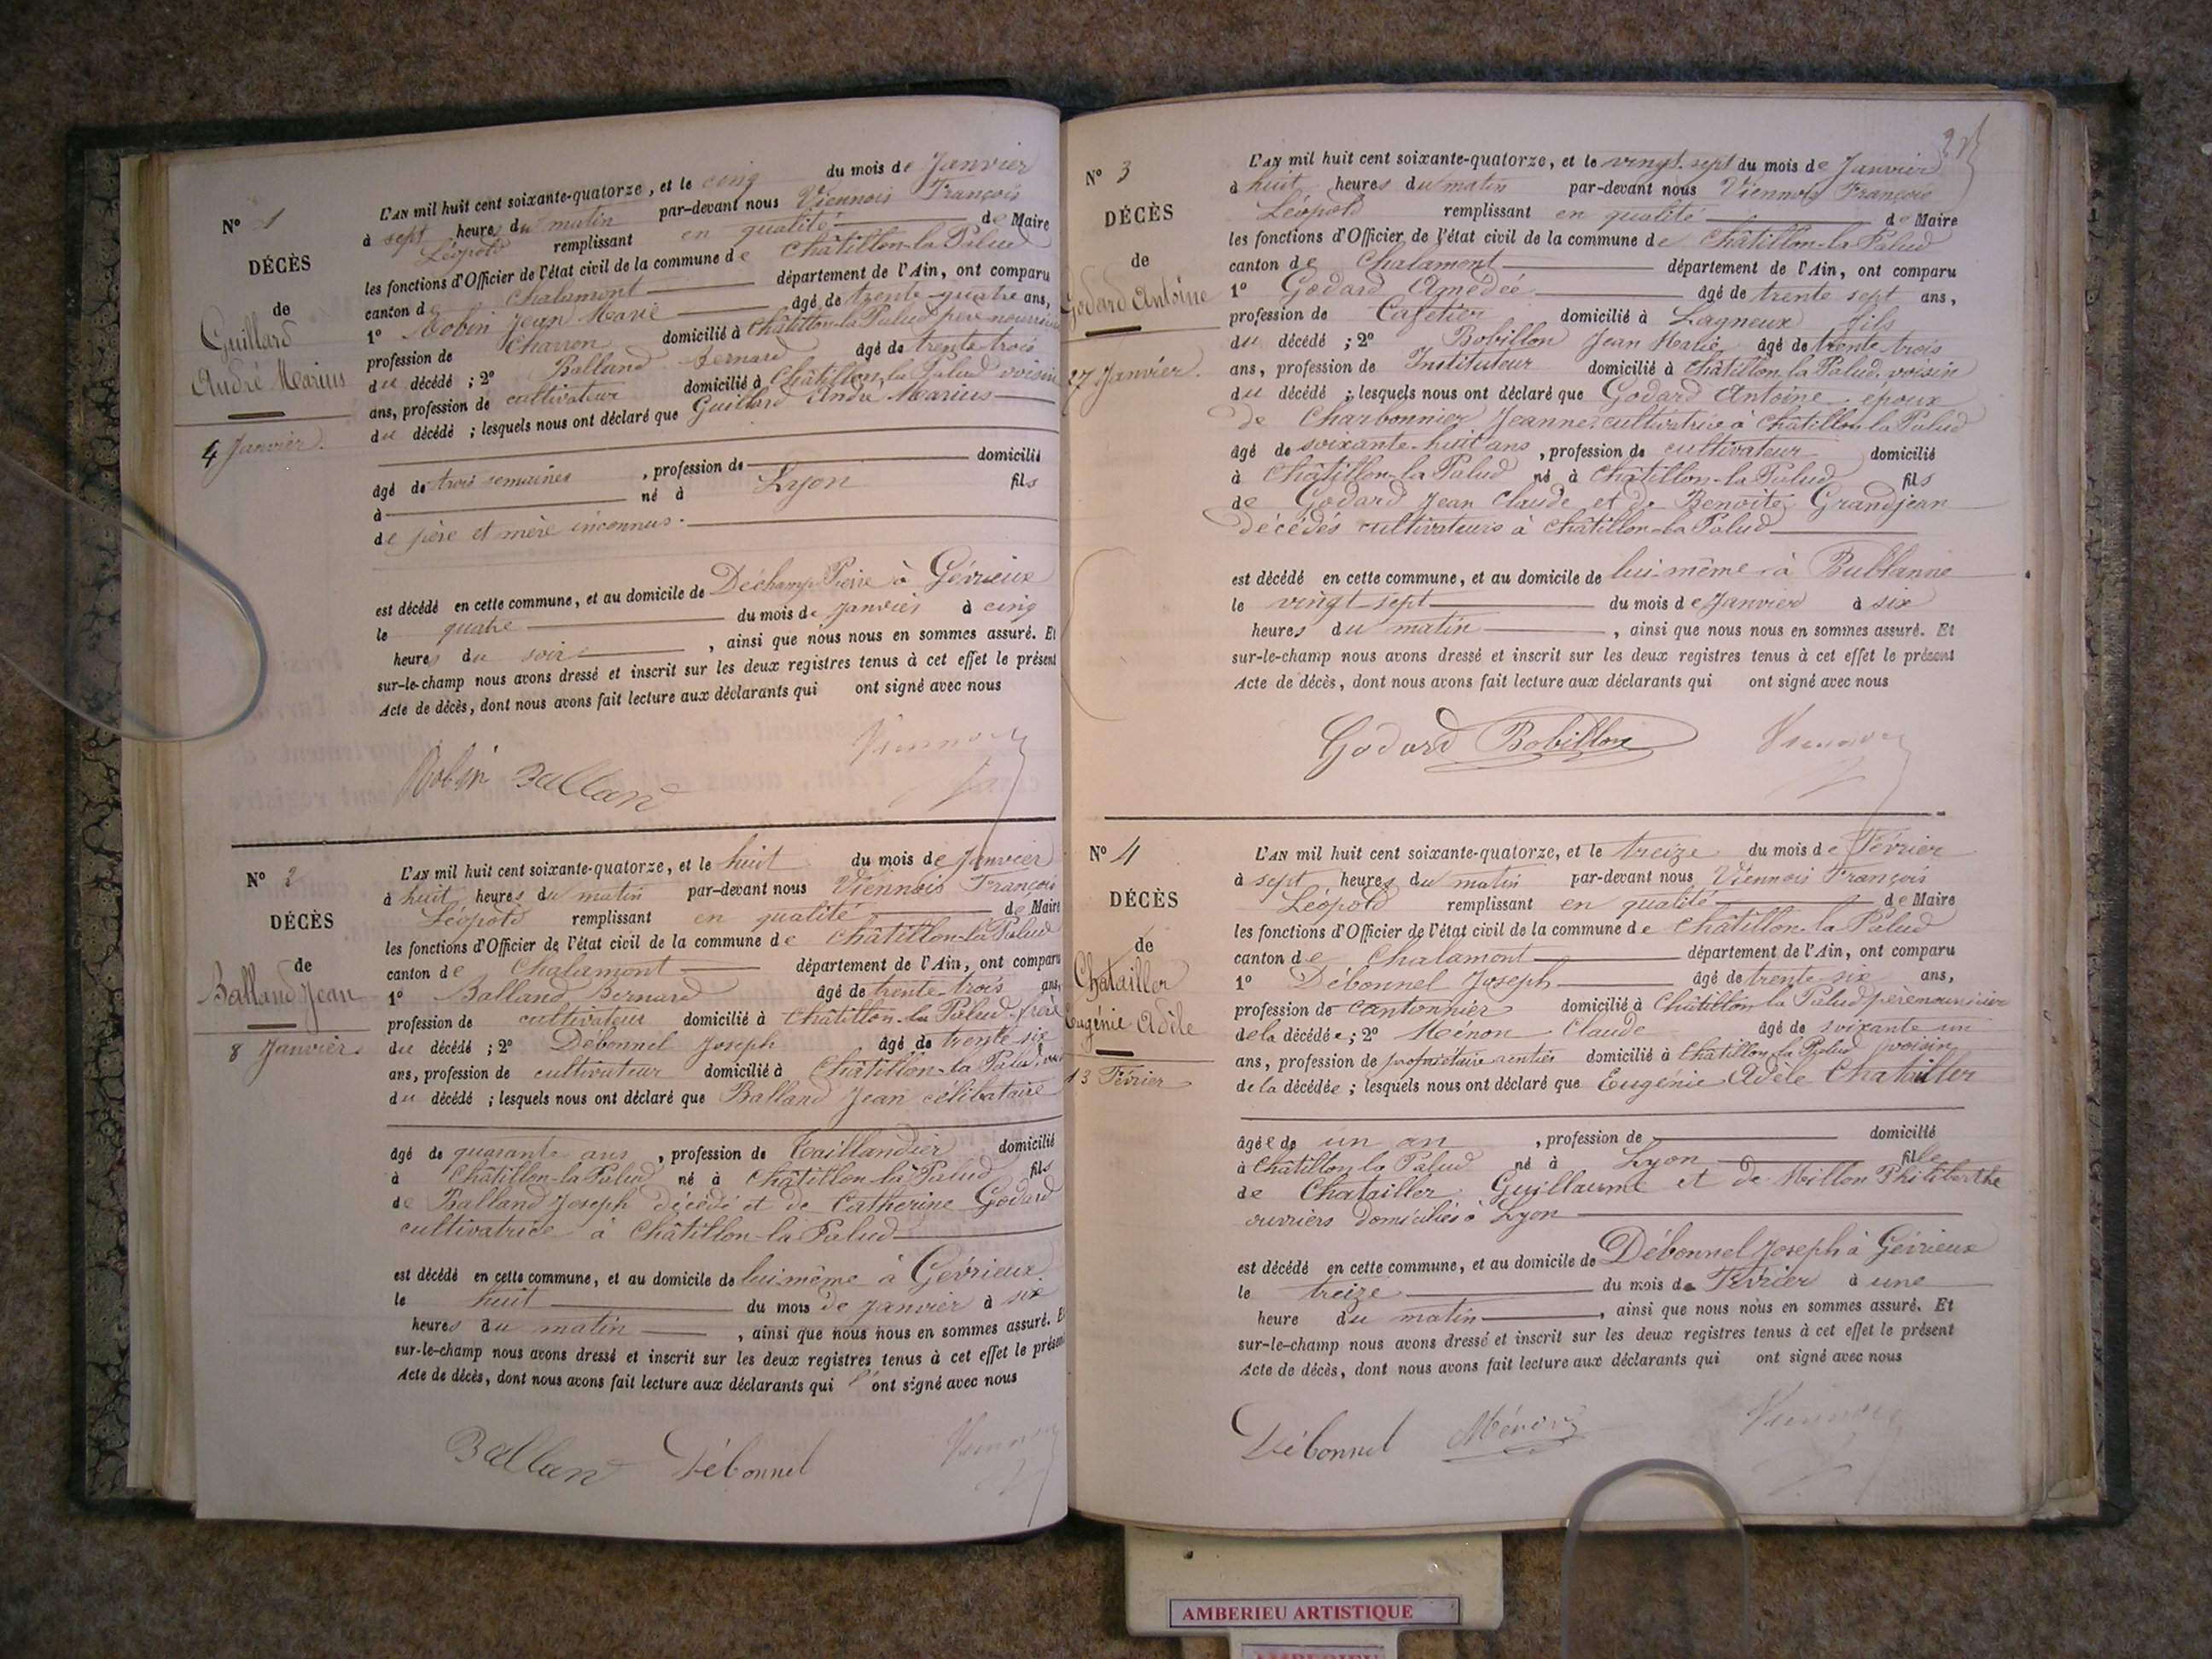 N° 1
DÉCÈS
de
Guillard
André Marius
4 Janvier.
L'AN mil huit cent soixante-quatorze, et le cinq du mois de Janvier
à sept heures du matin par-devant nous Viennois François
Léopold remplissant en qualité de Maire
les fonctions d'Officier de l'état civil de la commune de Châtillon-la-Palud
canton de Chalamont département de l'Ain, ont comparu
1° Robin Jean Marie âgé de trente-quatre ans,
profession de Charron domicilié à Châtillon-la-Palud père nourricier
du décédé ; 2° Balland Bernard âgé de trente trois
ans, profession de cultivateur domicilié à Châtillon-la-Palud voisin
du décédé ; lesquels nous ont déclaré que Guillard André Marius
âgé de trois semaines , profession de domicilié
à né à Lyon fils
de père et mère inconnus.
est décédé en cette commune, et au domicile de Déchamp Pierre à Gévrieux
le quatre du mois de Janvier à cinq
heures du soir , ainsi que nous nous en sommes assuré. Et
sur-le-champ nous avons dressé et inscrit sur les deux registres tenus à cet effet le présent
Acte de décès, dont nous avons fait lecture aux déclarants qui ont signé avec nous
Robin Balland
N° 2
DÉCÈS
de
Balland Jean
8 Janvier
L'AN mil huit cent soixante-quatorze, et le huit du mois de Janvier
à huit heures du matin par-devant nous Viennois François
Léopold remplissant en qualité de Maire
les fonctions d'Officier de l'état civil de la commune de Châtillon-la-Palud
canton de Chalamont département de l'Ain, ont comparu
1° Balland Bernard âgé de trente-trois ans,
profession de cultivateur domicilié à Châtillon-la-Palud frère
du décédé ; 2° Débonnel Joseph âgé de trente six
ans, profession de cultivateur domicilié à Châtillon-la-Palud
du décédé ; lesquels nous ont déclaré que Balland Jean célibataire
âgé de quarante ans , profession de Taillandier domicilié
à Châtillon-la-Palud né à Châtillon-la-Palud fils
de Balland Joseph décédé et de Catherine Godard
cultivatrice à Châtillon-la-Palud
est décédé en cette commune, et au domicile de lui-même à Gévrieux
le huit du mois de Janvier à six
heures du matin , ainsi que nous nous en sommes assuré. Et
sur-le-champ nous avons dressé et inscrit sur les deux registres tenus à cet effet le présent
Acte de décès, dont nous avons fait lecture aux déclarants qui l'ont signé avec nous
Balland Débonnel
N° 3
DÉCÈS
de
Godard Antoine
27 Janvier.
L'AN mil huit cent soixante-quatorze, et le vingt-sept du mois de Janvier
à huit heures du matin par-devant nous Viennois François
Léopold remplissant en qualité de Maire
les fonctions d'Officier de l'état civil de la commune de Châtillon-la-Palud
canton de Chalamont département de l'Ain, ont comparu
1° Godard Amédée âgé de trente sept ans,
profession de Cafetier domicilié à Lagneux fils
du décédé ; 2° Bobillon Jean Marie âgé de trente trois
ans, profession de Instituteur domicilié à Châtillon la Palud, voisin
du décédé ; lesquels nous ont déclaré que Godard Antoine époux
de Charbonnier Jeanne cultivatrice à Châtillon la Palud
âgé de soixante-huit ans , profession de cultivateur domicilié
à Châtillon-la-Palud né à Châtillon-la-Palud fils
de Godard Jean Claude et de Benoîte Grandjean
décédés cultivateurs à Châtillon-la-Palud
est décédé en cette commune, et au domicile de lui-même à Bublanne
le vingt-sept du mois de Janvier à six
heures du matin , ainsi que nous nous en sommes assuré. Et
sur-le-champ nous avons dressé et inscrit sur les deux registres tenus à cet effet le présent
Acte de décès, dont nous avons fait lecture aux déclarants qui ont signé avec nous
Godard Bobillon
N° 4
DÉCÈS
de
Chatailler
Eugénie Adèle
13 Février
L'AN mil huit cent soixante-quatorze, et le treize du mois de Février
à sept heures du matin par-devant nous Viennois François
Léopold remplissant en qualité de Maire
les fonctions d'Officier de l'état civil de la commune de Châtillon-la-Palud
canton de Chalamont département de l'Ain, ont comparu
1° Débonnel Joseph âgé de trente-six ans,
profession de Cantonnier domicilié à Châtillon la Palud père nourricier
de la décédée ; 2° Ménon Claude âgé de soixante un
ans, profession de propriétaire rentier domicilié à Châtillon-la-Palud voisin
de la décédée ; lesquels nous ont déclaré que Eugénie Adèle Chatailler
âgée de un an , profession de domicilié
à Châtillon la Palud né à Lyon fille
de Chatailler Guillaume et de Millon Philiberthe
ouvriers domiciliés à Lyon
est décédé en cette commune, et au domicile de Débonnel Joseph à Gévrieux
le treize du mois de Février à une
heure du matin , ainsi que nous nous en sommes assuré. Et
sur-le-champ nous avons dressé et inscrit sur les deux registres tenus à cet effet le présent
Acte de décès, dont nous avons fait lecture aux déclarants qui ont signé avec nous
Débonnel Ménon
AMBERIEU ARTISTIQUE
AMBERIEU